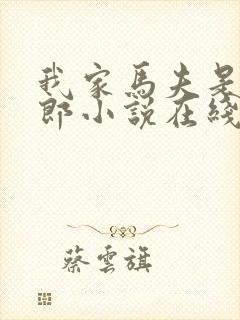 我家馬夫是
郎小說在綫
蔡雲旗